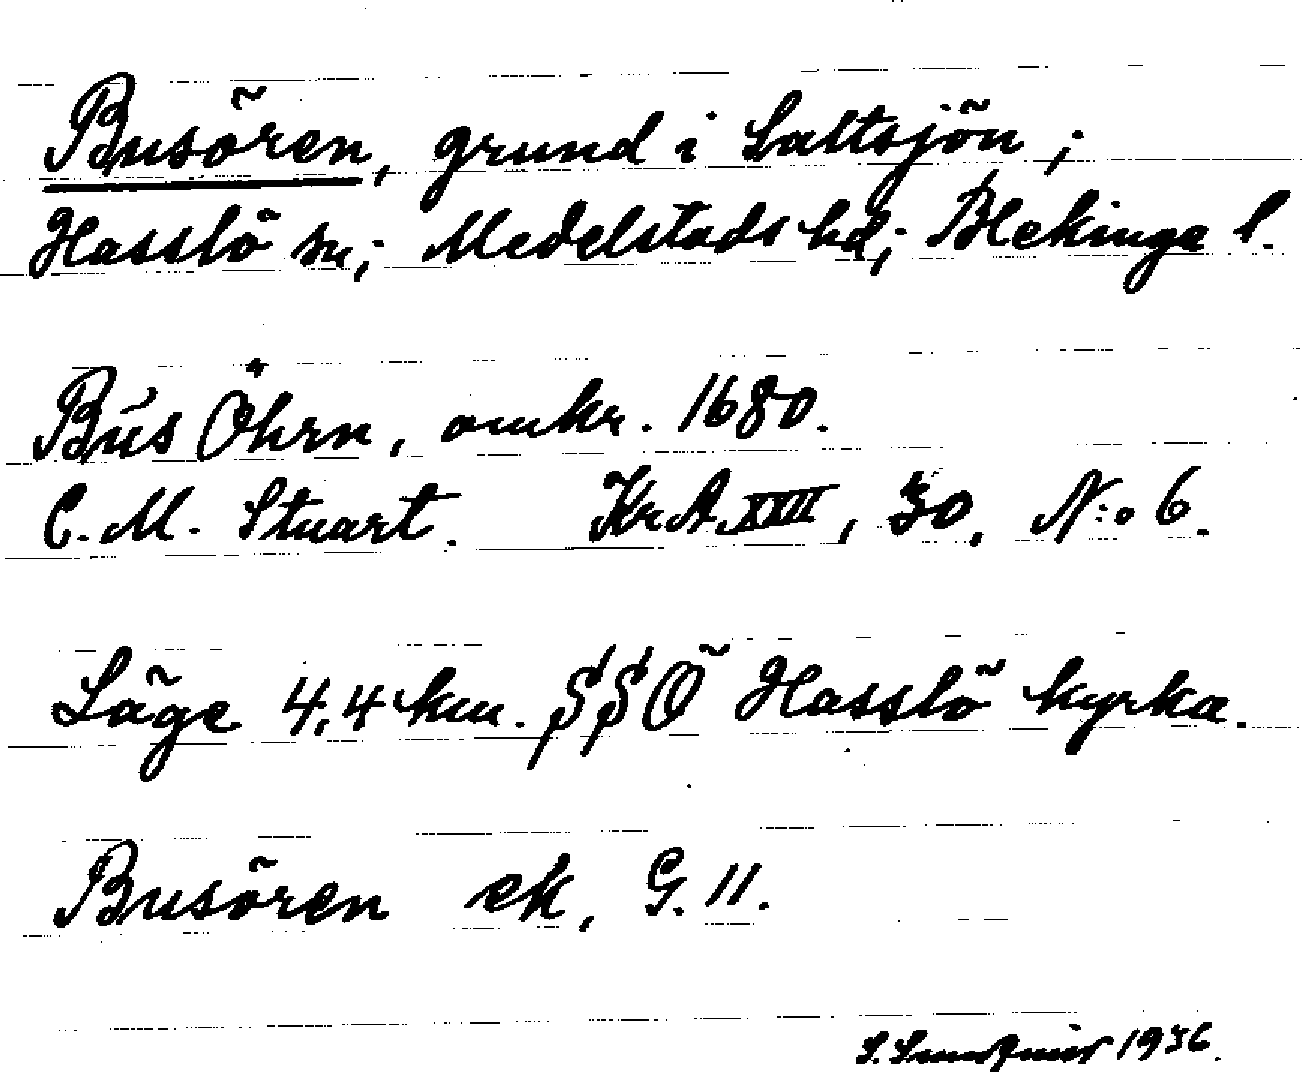 Busören, grund i Saltsjön;
Hasslö sn; Medelstads hd; Blekinge l.
Bus Öhrn, omkr. 1680.
C. M. Stuart. KrA XXII, 30, N:o 6.
Läge 4,4 km. SSÖ Hasslö kyrka.
Busören ek, G. 11.
S. 1936.